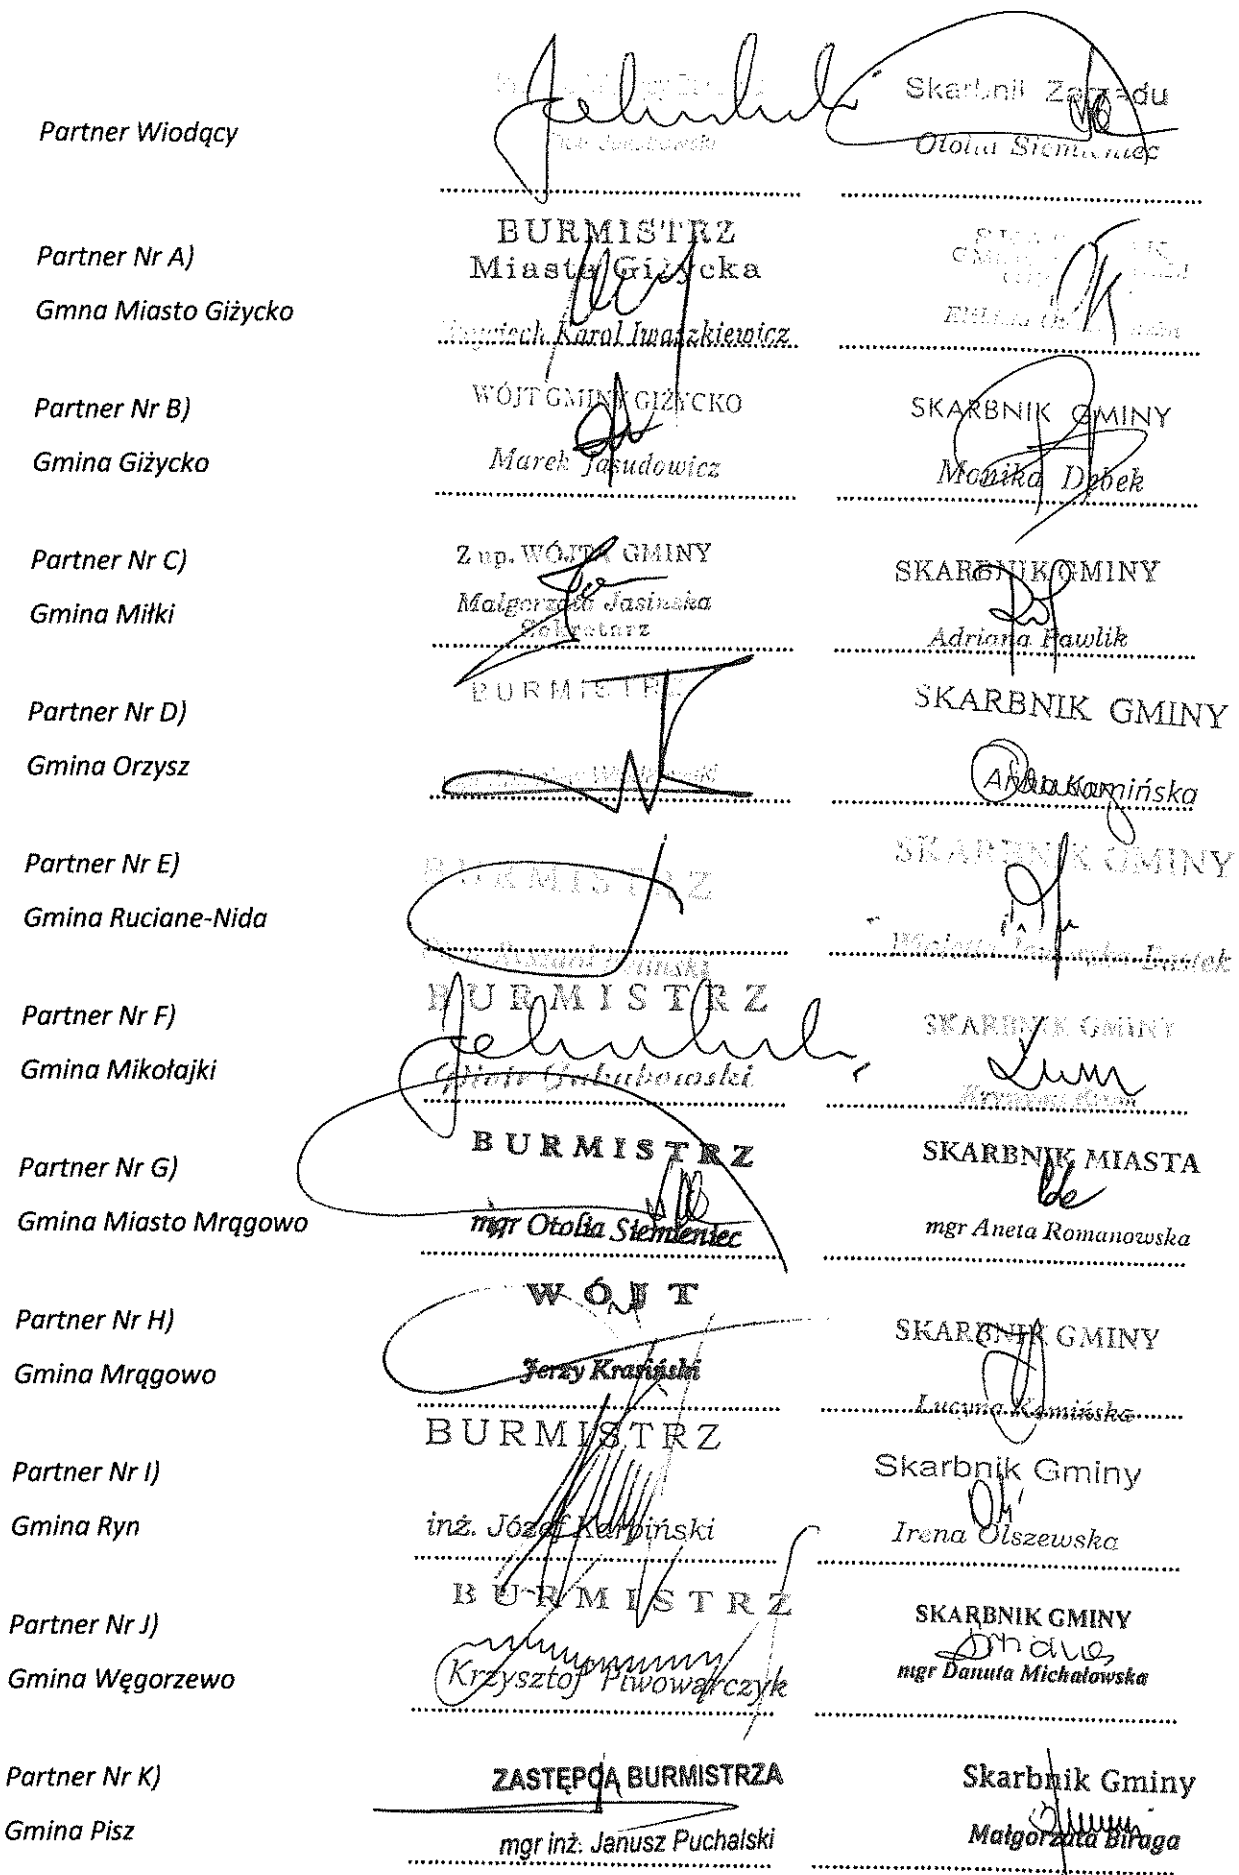 Partner Wiodący
Skarbnik Zarządu
Otolia Siemieniec
Partner Nr A)
Gmna Miasto Giżycko
BURMISTRZ
Miasta Giżycka
Wojciech Karol Iwaszkiewicz
Partner Nr B)
Gmina Giżycko
WÓJT GMINY GIŻYCKO
Marek Jasudowicz
SKARBNIK GMINY
Monika Dębek
Partner Nr C)
Gmina Miłki
Z up. WÓJTA GMINY
Małgorzata Jasińska
Sekretarz
SKARBNIK GMINY
Adriana Pawlik
Partner Nr D)
Gmina Orzysz
BURMISTRZ
SKARBNIK GMINY
Kamińska
Partner Nr E)
Gmina Ruciane-Nida
BURMISTRZ
SKARBNIK GMINY
Wioletta Bastek
Partner Nr F)
Gmina Mikołajki
BURMISTRZ
Piotr Jakubowski
SKARBNIK GMINY
Partner Nr G)
Gmina Miasto Mrągowo
BURMISTRZ
mgr Otolia Siemieniec
SKARBNIK MIASTA
mgr Aneta Romanowska
Partner Nr H)
Gmina Mrągowo
WÓJT
Jerzy Krasiński
SKARBNIK GMINY
Lucyna Kamińska
Partner Nr I)
Gmina Ryn
BURMISTRZ
inż. Józef Karpiński
Skarbnik Gminy
Irena Olszewska
Partner Nr J)
Gmina Węgorzewo
BURMISTRZ
Krzysztof Piwowarczyk
SKARBNIK GMINY
mgr Danuta Michałowska
Partner Nr K)
Gmina Pisz
ZASTĘPCA BURMISTRZA
mgr inż. Janusz Puchalski
Skarbnik Gminy
Małgorzata Biraga